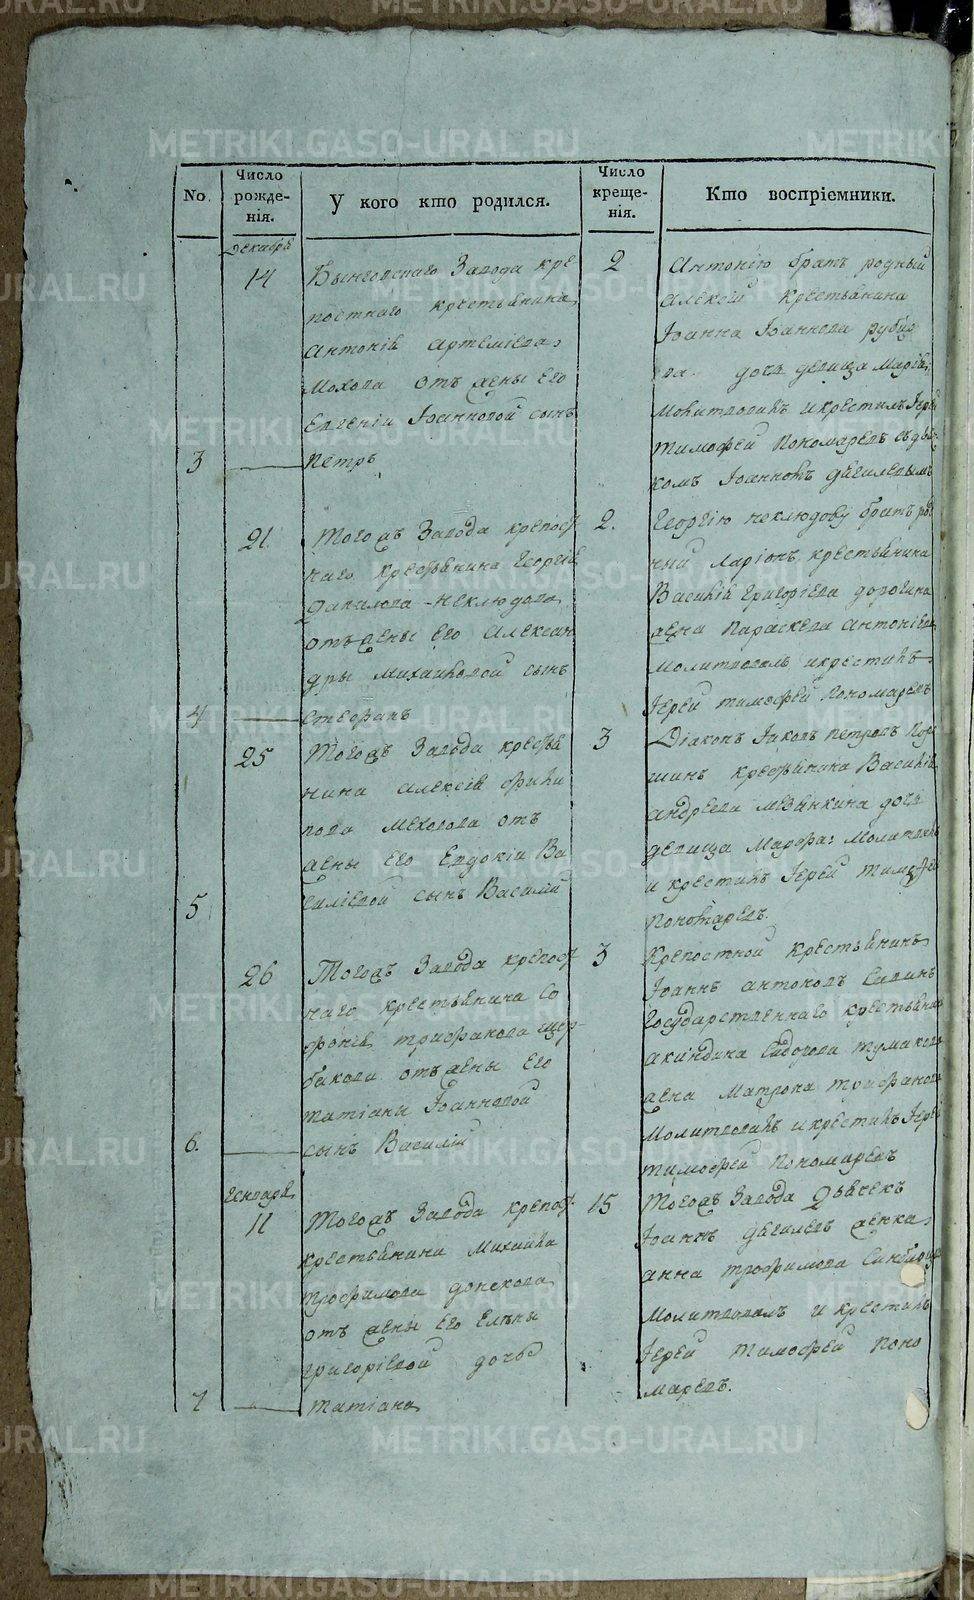 No.
Число рожде-нія.
У кого кто родился.
Число креще-нія.
Кто воспріемники.
Декабря
14
Бынговскаго Завода кре
постнаго крестьянина
Антонія Артеміева
Мохова отъ жены Его
Евгеніи Іоанновой сынъ
3
Петръ
2
Антонію братъ родный
Алексій крестьянина
Іоанна Іоаннова
дочь девица Марія
Молитвовалъ и крестилъ Іерей
Тимофей Пономаревъ съ дья
комъ Іоанномъ Дягилевымъ
21
Тогожъ Завода крепост
наго крестьянина Георгія
Данилова Неклюдова
отъ жены его Алексан
дры Михайловой сынъ
4
Стефанъ
2.
Георгію Неклюдову братъ род
ный Ларіонъ, крестьянина
Василія Григоріева Дорогина
жена Параскева Антоніева
молитвовалъ и крестилъ
Іерей Тимофей Пономаревъ
25
Тогожъ Завода крестья
нина Алексія Фили
пова отъ
жены Его Евдокіи Ва
силіевой сынъ Василій
5
3
Діаконъ Іаковъ Петровъ
крестьянина Василія
Андреева дочь
девица Марфа: Молитвовалъ
и крестилъ Іерей Тимофей
Пономаревъ.
26
Тогожъ Завода крепост
наго крестьянина Со
фронія Трифанова Щер-
бакова отъ жены Его
Татіаны Іоанновой
6.
сынъ Василій
3
Крепостной крестьянинъ
Іоаннъ Антоновъ
Государственнаго крестьянина
Акиндина Сидорова Тумакова
жена Матрона Трифанова
Молитвовалъ и крестилъ Іерей
Тимофей Пономаревъ
Генваря
11
Тогожъ Завода крепост.
крестьянина Михаила
Трофимова Донскова
отъ жены Его Елены
Григоріевой дочь
7
Татіана
15
Тогожъ Завода Дьячекъ
Іоаннъ Дягилевъ женка
Анна Трофимова
Молитвовалъ и крестилъ
Іерей Тимофей Поно
маревъ.
METRIKI.GASO-URAL.RU